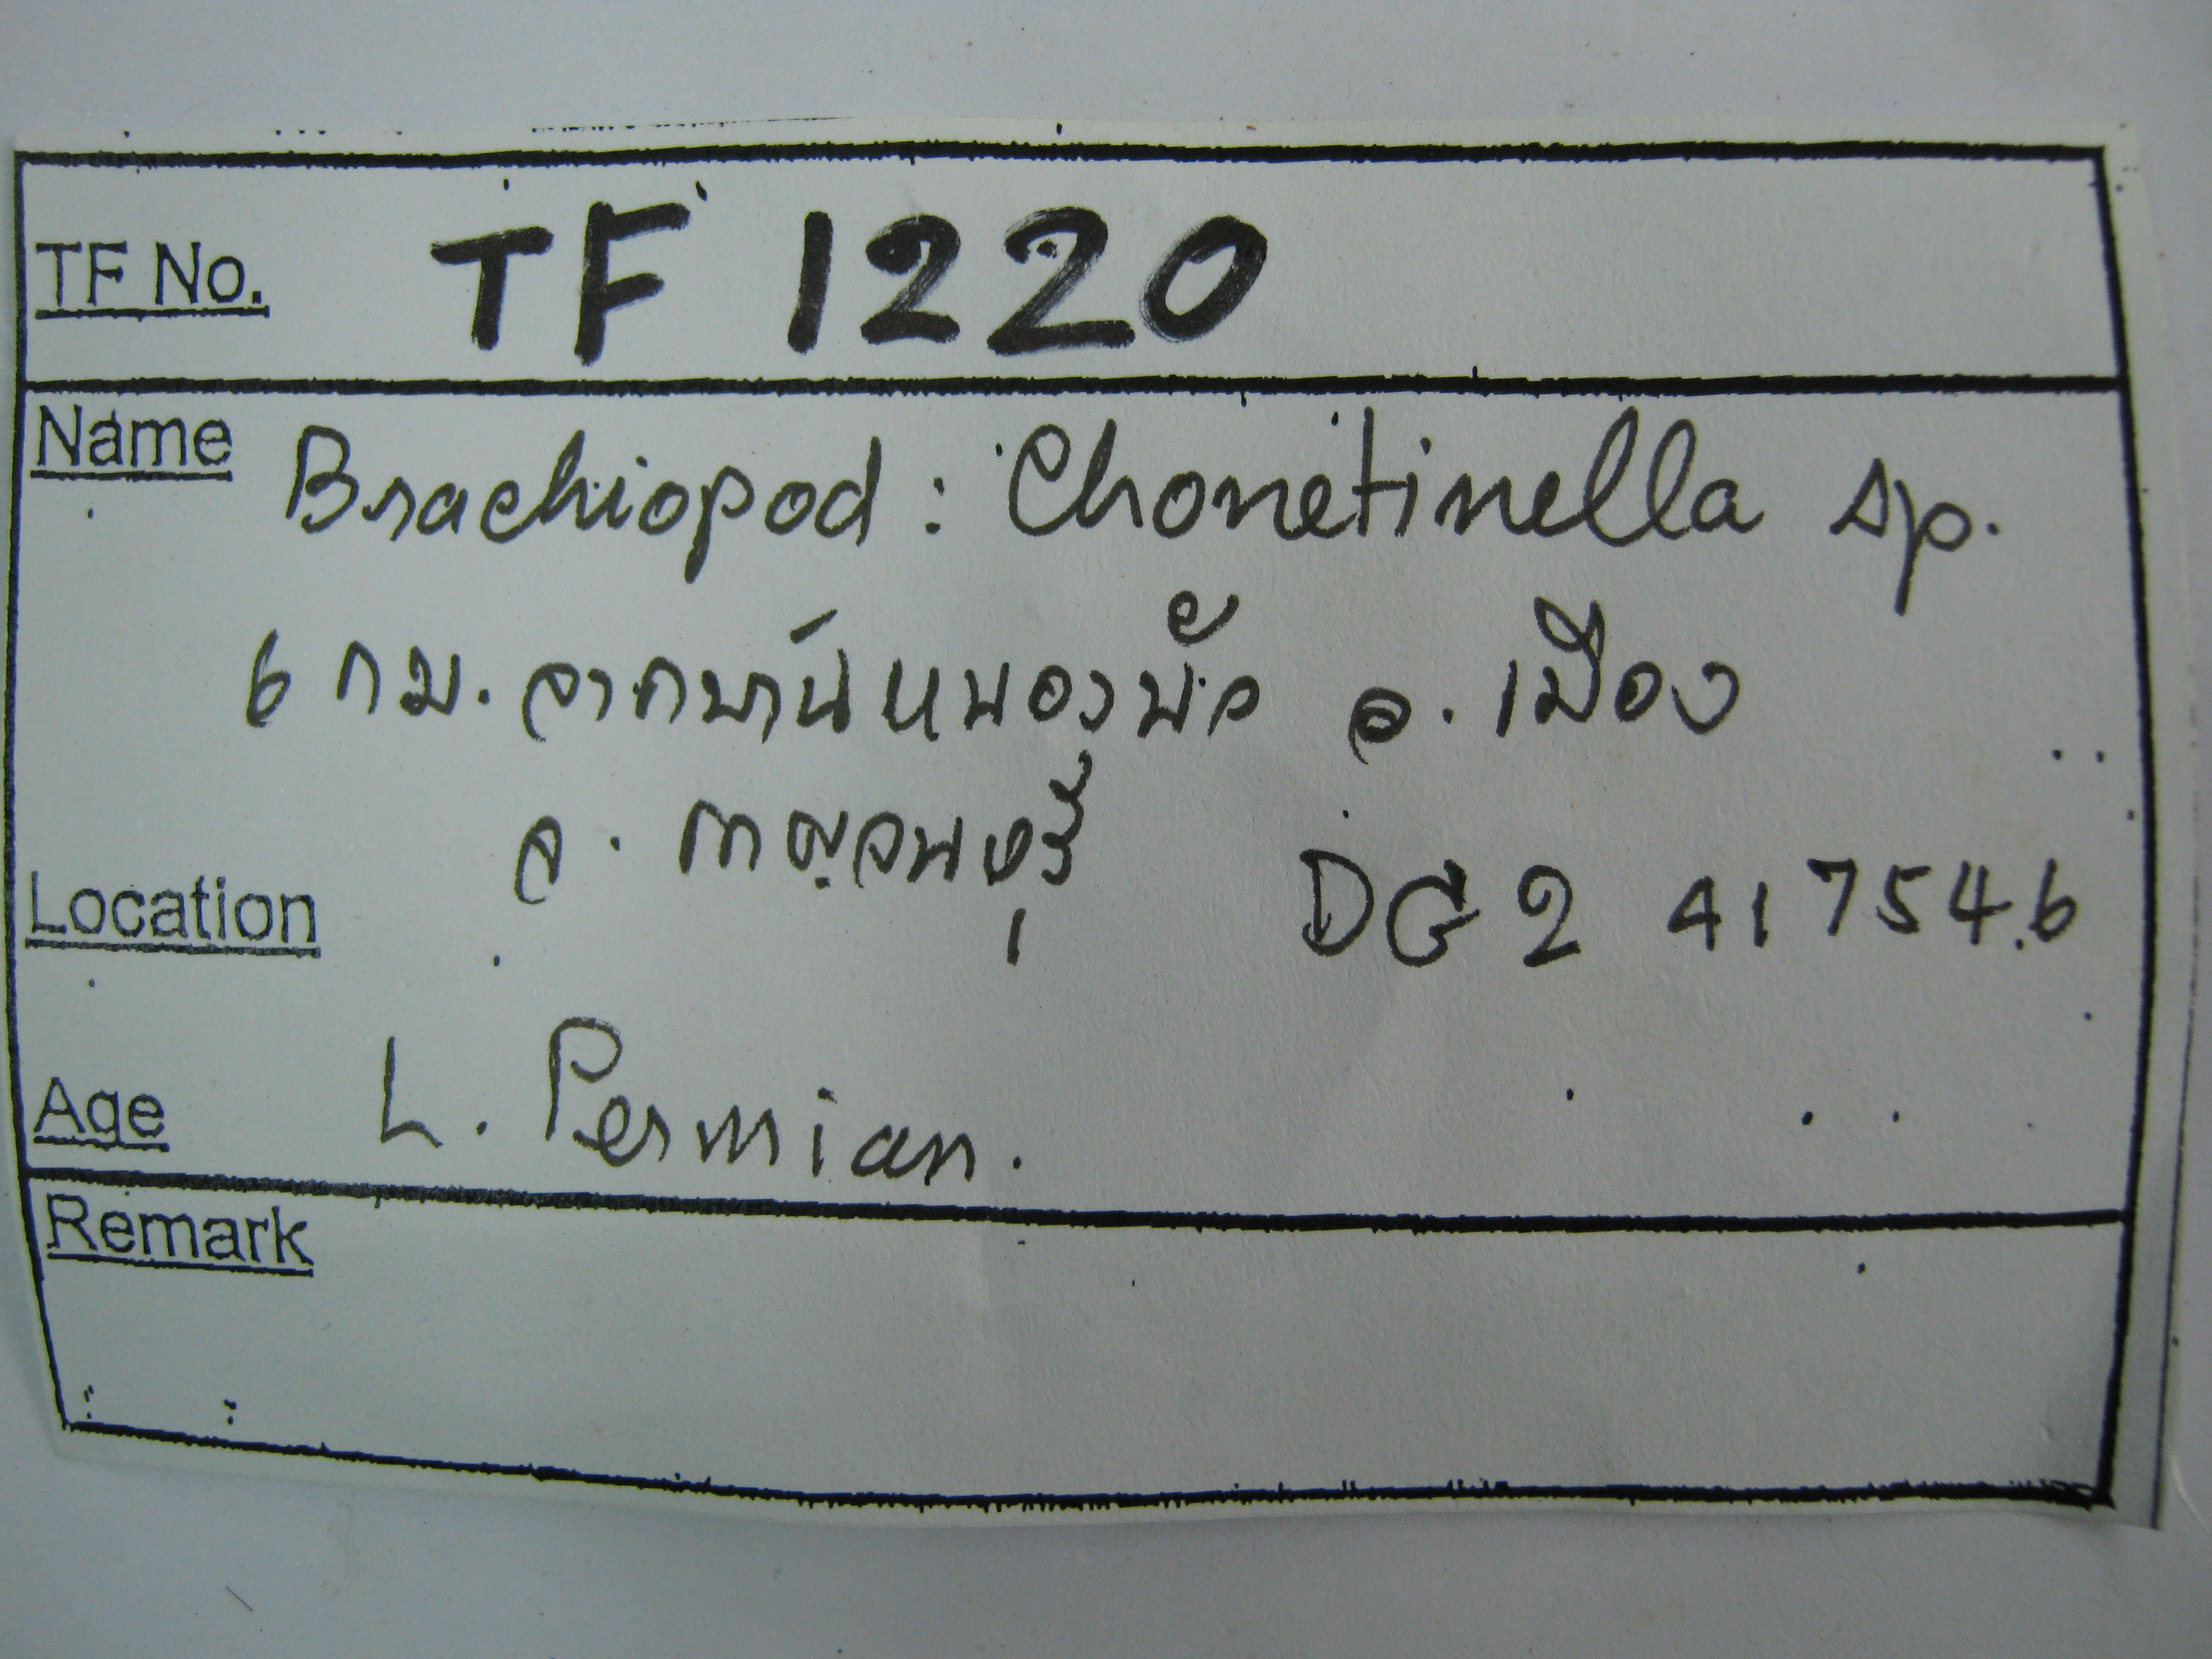 TF No. TF 1220
Name Brachiopod : Chonetinella sp.
6 กม. จากบ้านหนองบัว อ. เมือง
จ. กาญจนบุรี
Location DG 2 41754.6
Age L. Permian.
Remark